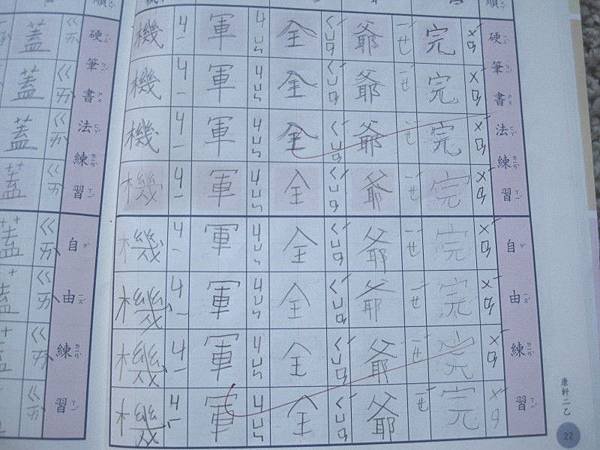 順
硬筆書法練習
自由練習
康軒二乙
22
完完完完完完完完
ㄨㄢˊ ㄨㄢˊ ㄨㄢˊ ㄨㄢˊ ㄨㄢˊ ㄨㄢˊ ㄨㄢˊ ㄨㄢˊ
爺爺爺爺爺爺爺爺
ㄧㄝˊ ㄧㄝˊ ㄧㄝˊ ㄧㄝˊ ㄧㄝˊ ㄧㄝˊ ㄧㄝˊ ㄧㄝˊ
全全全全全全全全
ㄑㄩㄢˊ ㄑㄩㄢˊ ㄑㄩㄢˊ ㄑㄩㄢˊ ㄑㄩㄢˊ ㄑㄩㄢˊ ㄑㄩㄢˊ ㄑㄩㄢˊ
軍軍軍軍軍軍軍軍
ㄐㄩㄣ ㄐㄩㄣ ㄐㄩㄣ ㄐㄩㄣ ㄐㄩㄣ ㄐㄩㄣ ㄐㄩㄣ ㄐㄩㄣ
機機機機機機機機
ㄐㄧ ㄐㄧ ㄐㄧ ㄐㄧ ㄐㄧ ㄐㄧ ㄐㄧ ㄐㄧ
順
硬筆書法練習
自由練習
蓋蓋蓋蓋蓋蓋蓋蓋
ㄍㄞˋ ㄍㄞˋ ㄍㄞˋ ㄍㄞˋ ㄍㄞˋ ㄍㄞˋ ㄍㄞˋ ㄍㄞˋ